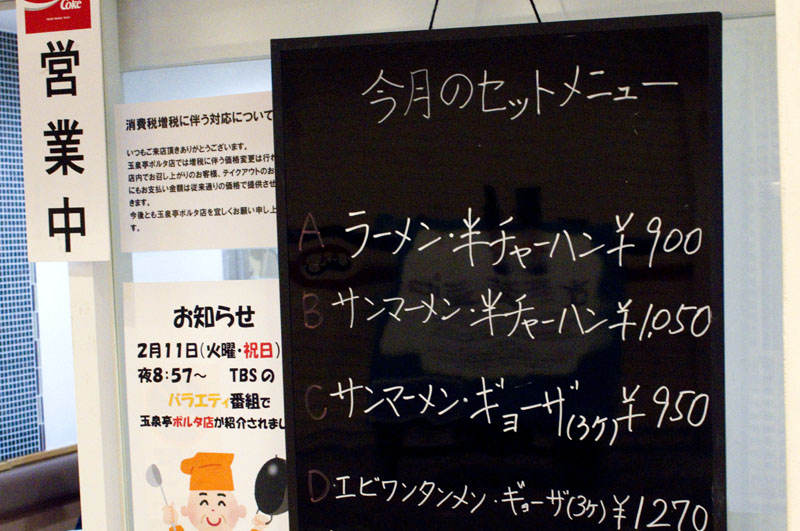 Coke
営業中
消費税増税に伴う対応について
いつもご来店頂きありがとうございます。
玉泉亭ポルタ店では増税に伴う価格変更は行わ
店内でお召し上がりのお客様、テイクアウトのお
にもお支払い金額は従来通りの価格で提供させ
きます。
今後とも玉泉亭ポルタ店を宜しくお願い申し上
お知らせ
2月11日(火曜・祝日)
夜8:57～ TBSの
バラエティ番組で
玉泉亭ポルタ店が紹介されまし
今月のセットメニュー
A ラーメン・半チャーハン ¥900
B サンマーメン・半チャーハン ¥1,050
C サンマーメン・ギョーザ(3ケ) ¥950
D エビワンタンメン・ギョーザ(3ケ) ¥1270